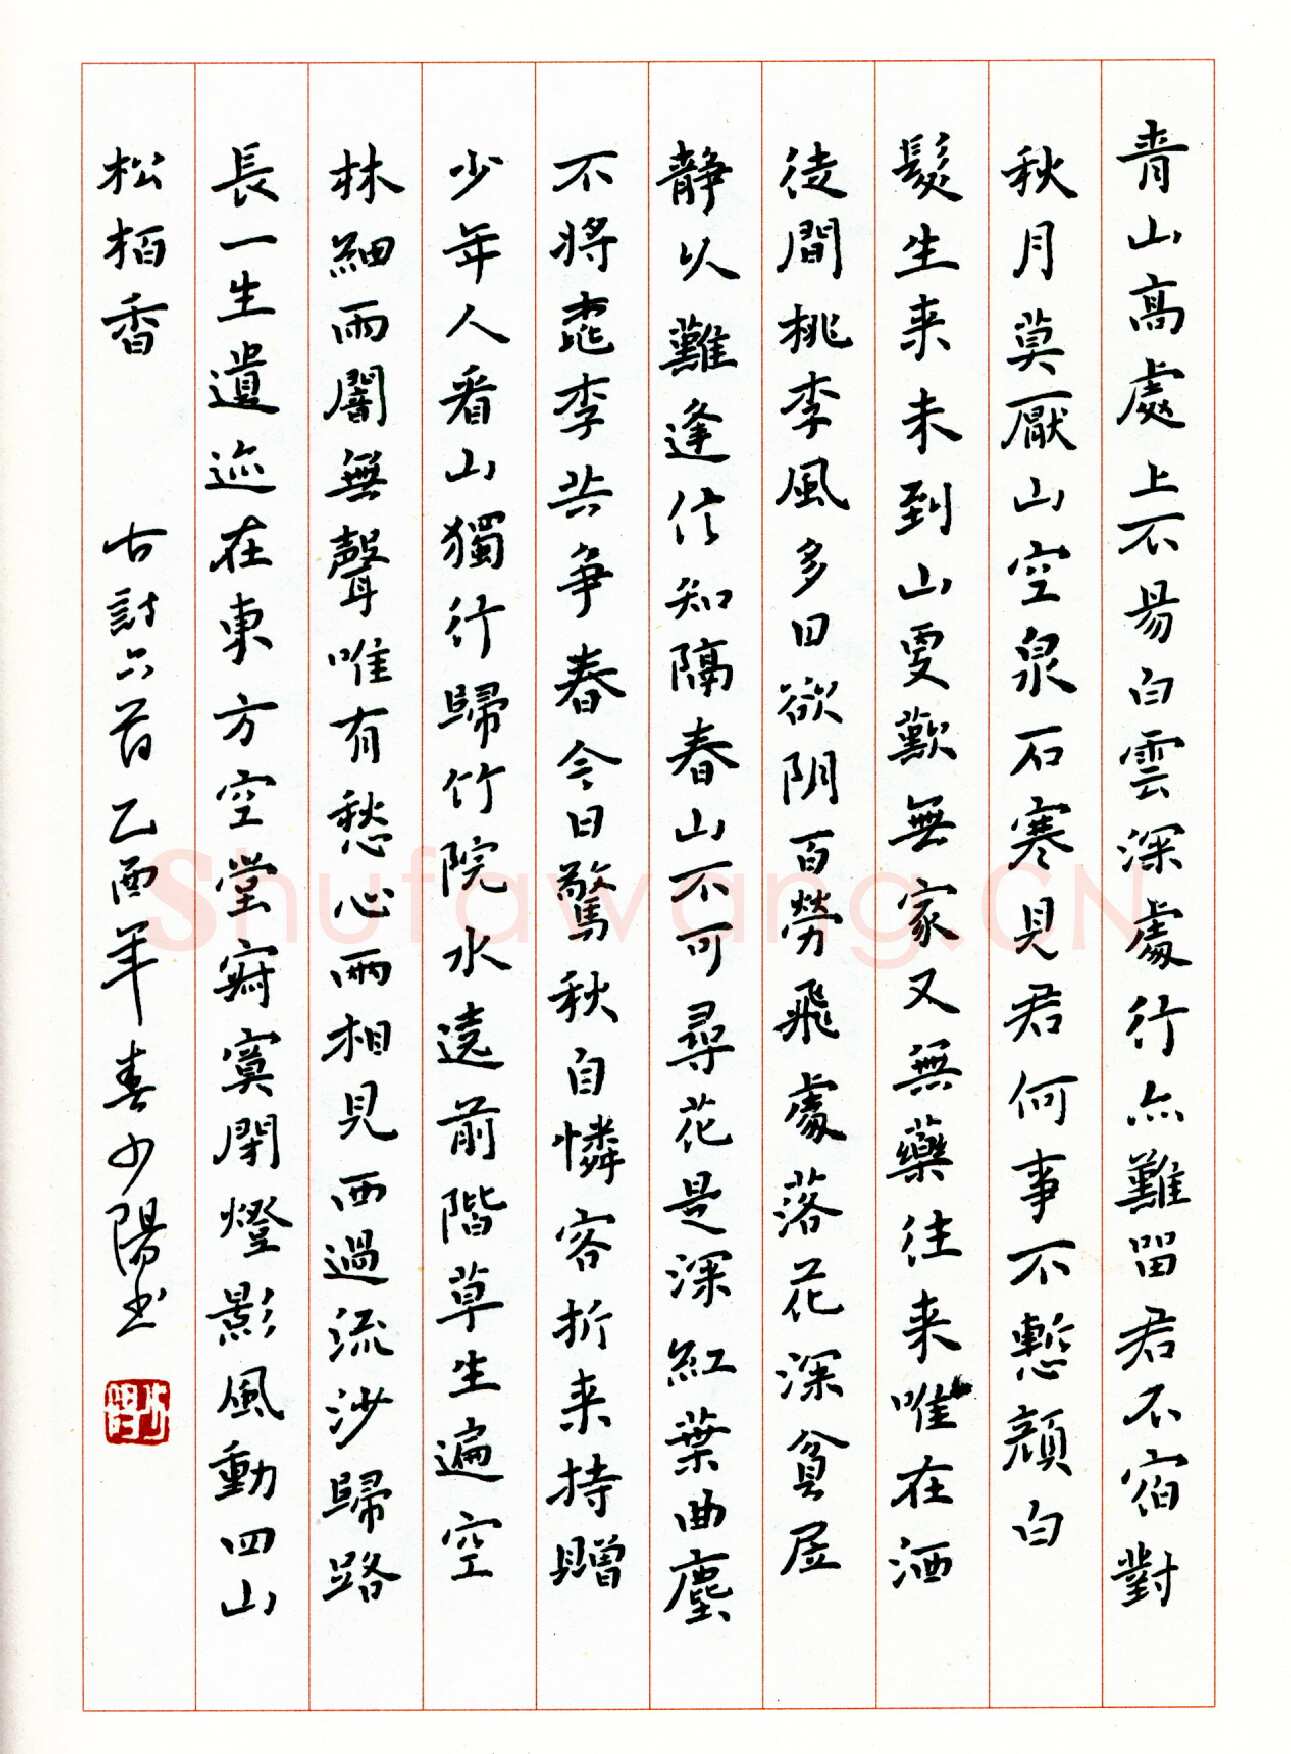 青山高處上不易白雲深處行亦難留君不宿對
秋月莫厭山空泉石寒見君何事不慙顔白
髮生来未到山更歎無家又無藥往来唯在酒
徒間桃李風多日欲阴百勞飛處落花深貧居
静以難逢信知隔春山不可尋花是深紅葉曲塵
不將桃李共争春今日驚秋自憐客折来持贈
少年人看山獨行歸竹院水遶前階草生遍空
林細雨闇無聲唯有愁心兩相見西過流沙歸路
長一生遺迹在東方空堂寂寞閉燈影風動四山
松栢香 古詩六首 乙酉年春少陽书
少陽
Shufawang.CN